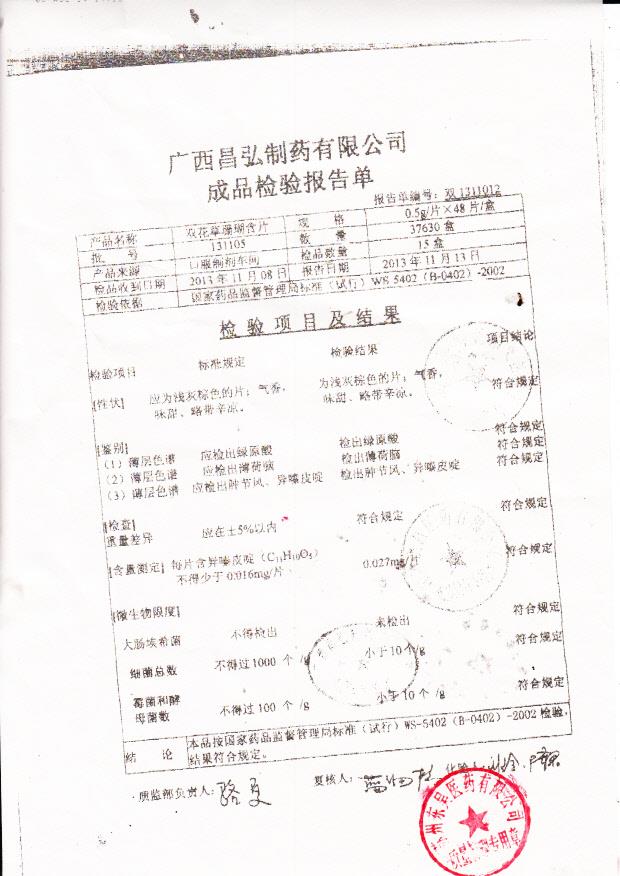 广西昌弘制药有限公司
成品检验报告单
报告单编号：双1311012
产品名称 双花草珊瑚含片 规 格 0.5g/片×48片/盒
批 号 131105 数 量 37630 盒
产品来源 口服制剂车间 检品数量 15 盒
检品收到日期 2013年11月08日 报告日期 2013年11月13日
检验依据 国家药品监督管理局标准（试行）WS-5402（B-0402）-2002
检验项目及结果
检验项目 标准规定 检验结果 项目结论
[性状] 应为浅灰棕色的片；气香， 为浅灰棕色的片；气香， 符合规定
味甜、略带辛凉。 味甜、略带辛凉。
[鉴别]
（1）薄层色谱 应检出绿原酸 检出绿原酸 符合规定
（2）薄层色谱 应检出薄荷脑 检出薄荷脑 符合规定
（3）薄层色谱 应检出肿节风、异嗪皮啶 检出肿节风、异嗪皮啶 符合规定
[检查]
质量差异 应在±5%以内 符合规定 符合规定
[含量测定] 每片含异嗪皮啶（C11H10O5） 0.027mg/片 符合规定
不得少于0.016mg/片
[微生物限度]
大肠埃希菌 不得检出 未检出 符合规定
细菌总数 不得过1000 个 /g 小于10个/g 符合规定
霉菌和酵 不得过100 个 /g 小于10个 /g 符合规定
母菌数
结 论 本品按国家药品监督管理局标准（试行）WS-5402（B-0402）-2002检验，
结果符合规定。
质监部负责人： 复核人：